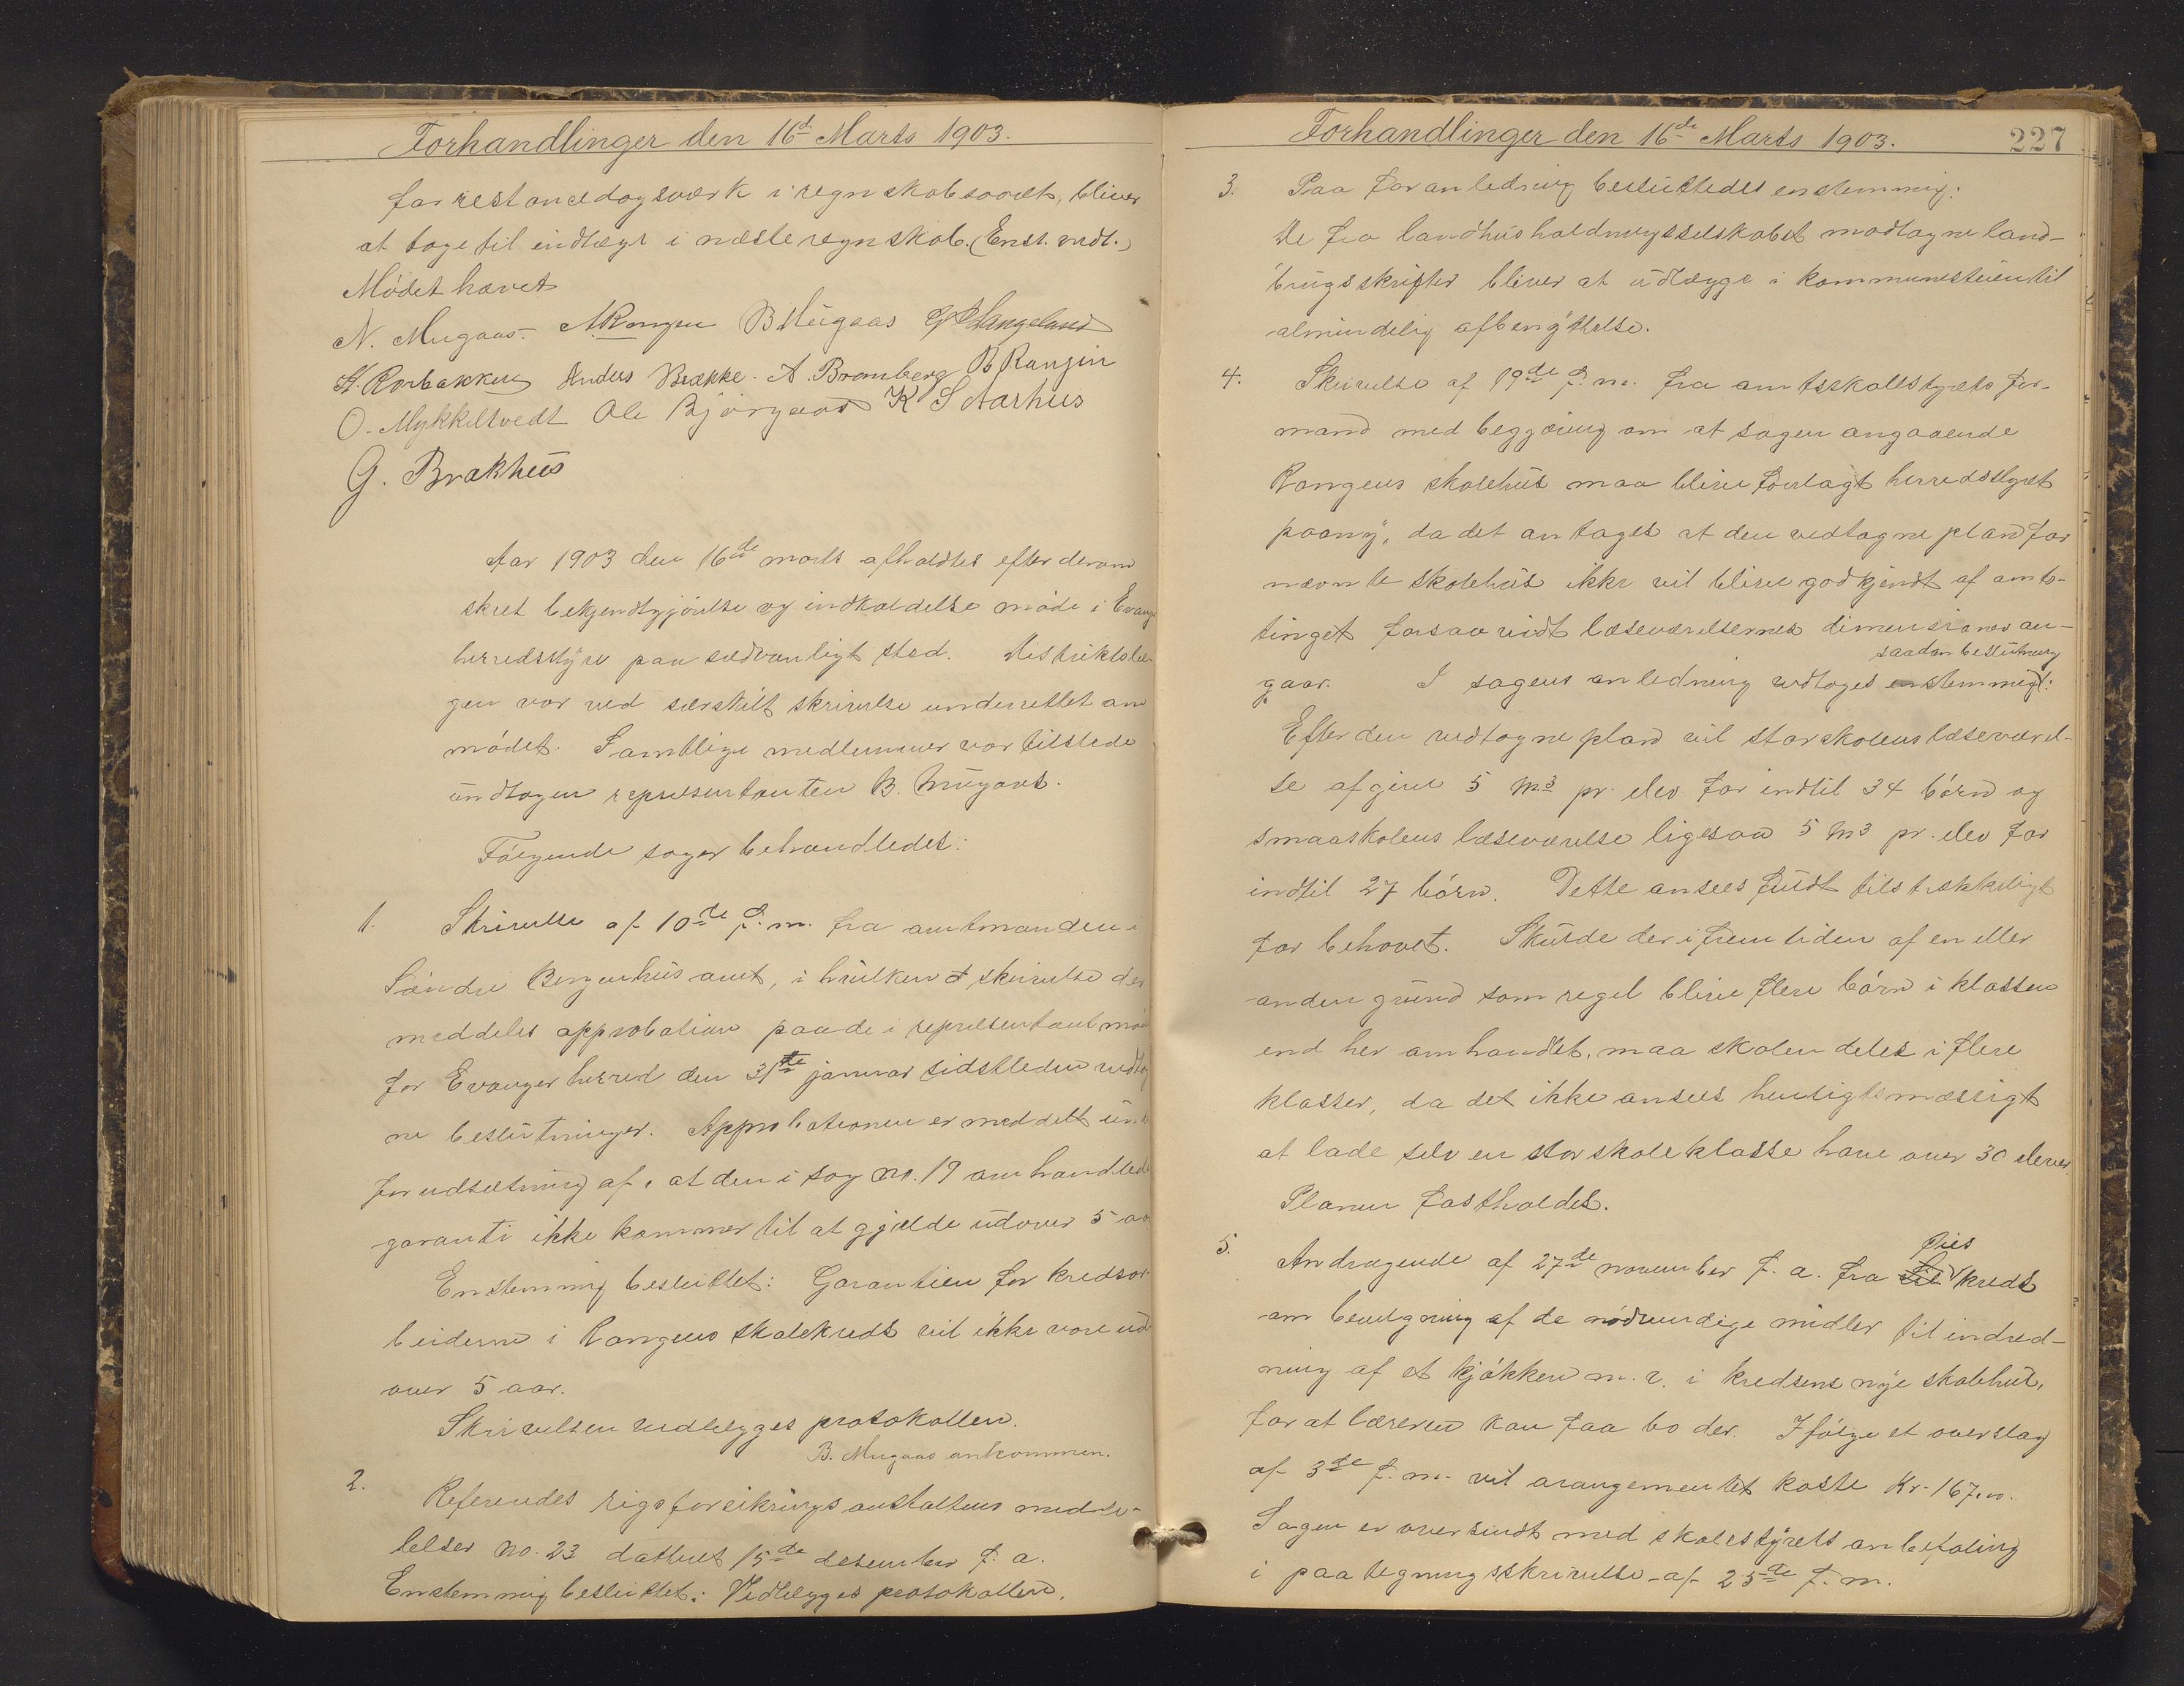 Forhandlinger den 16d Marts 1903.
for restancedagsværk i regnskabsaaret, bliver
at tage til indtægt i næste regnskab. (Enst. vedt.)
Mødet hævet
N. Mugaas. A Rongen B Mugaas
H. Rorbakken Anders Brække. A. Bromberg B Rangin
O. Mykkeltvedt Ole Bjørgaas K S Aarhus
G. Brakhus
Aar 1903 den 16de marts afholdtes efter derom
sket bekjendtgjørelse og indkaldelse møde i Evang
herredsstyre paa sædvanligt sted. Distriktslæ-
gen var ved særskilt skrivelse underrettet om
mødet. Samtlige medlemmer var tilstede
undtagen repræsentanten B. Mugaas.
Følgende sager behandledes:
1. Skrivelse af 10de f.m. fra amtmanden i
Søndre Bergenhus amt, i hvilken skrivelse der
meddeles approbation paa de i repræsentantmød
for Evanger herred den 31te januar sidstleden vedtag
ne beslutninger. Approbationen er meddelt und
forudsætning af, at den i sag no. 19 omhandlede
garanti ikke kommer til at gjælde udover 5 aar
Enstemmig besluttet: Garantien for kredsar-
beiderne i Rongens skolekreds vil ikke vare ud
over 5 aar.
Skrivelsen vedlægges protokollen.
B. Mugaas ankommen.
2. Refereredes rigsforsikringsanstaltens medde-
lelser no. 23 dateret 15de desember f. a.
Enstemmig besluttet: Vedlægges protokollen.
Forhandlinger den 16de Marts 1903. 227
3. Paa foranledning besluttedes enstemmig:
De fra landhusholdningsselskabet modtagne land-
brugsskrifter bliver at udlægge i kommunestuen til
almindelig afbenyttelse.
4. Skrivelse af 19de f.m. fra amtsskolestyrets for-
mand med begjæring om at sagen angaaende
Rongens skolehus maa blive forelagt herredsstyret
paany, da det antages at den vedtagne plan for
nævnte skolehus ikke vil blive godkjendt af amts-
tinget forsaavidt læseværelsernes dimensioner an-
saadan beslutning
gaar. I sagens anledning vedtoges enstemmigt:
Efter den vedtagne plan vil storskolens læseværel-
se afgive 5 m3 pr. elev for indtil 34 børn og
smaaskolens læseværelse ligesaa 5 m3 pr. elev for
indtil 27 børn. Dette ansees fuldt tilstrekkeligt
for behovet. Skulde der i fremtiden af en eller
anden grund som regel blive flere børn i klassen
end her omhandlet, maa skolen deles i flere
klasser, da det ikke ansees hensigtsmæssigt
at lade selv en storskoleklasse have over 30 elever.
Planen fastholdes.
5. Andragende af 27de november f. a. fra
kreds
om bevilgning af de nødvendige midler til indred-
ning af et kjøkken m. v. i kredsens nye skolehus,
for at læreren kan faa bo der. Ifølge et overslag
af 3de f. m. vil arangementet koste Kr. 167.00.
Sagen er oversendt med skolestyrets anbefaling
i paategningsskrivelse af 25de f. m.